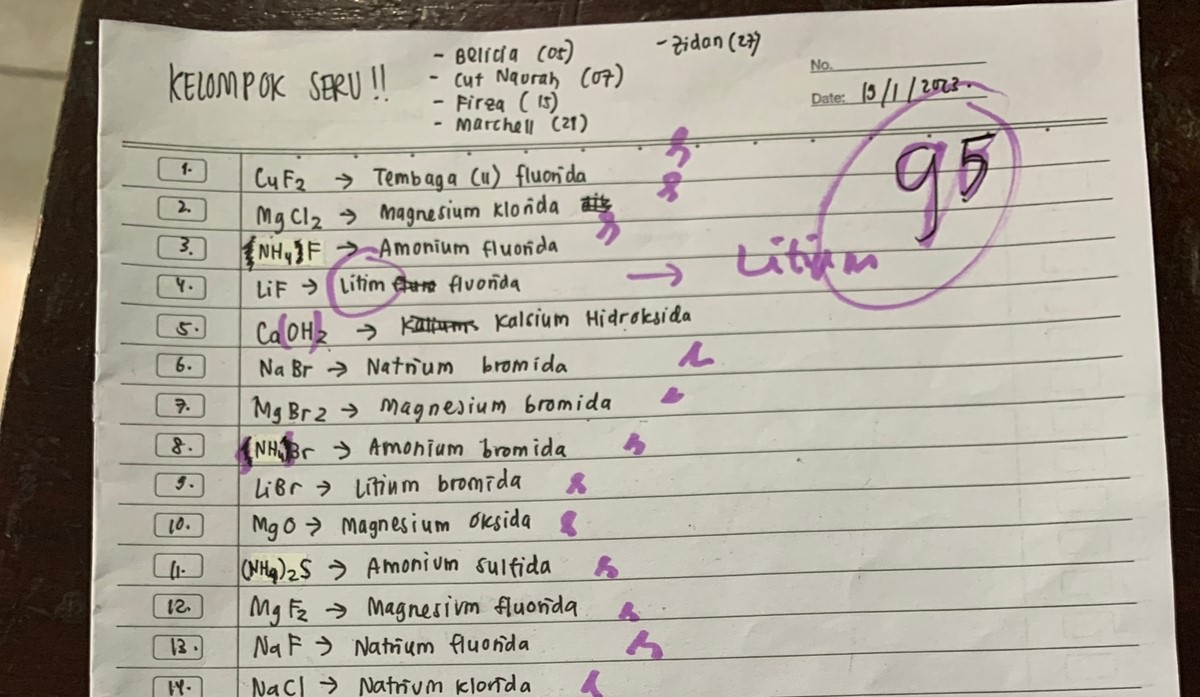 KELOMPOK SERU !!
- Belicia (05)
- Cut Naurah (07)
- Firza (15)
- Marchell (21)
- Zidan (27)
No.
Date: 19/1/2023.
95
1. CuF2 → Tembaga (II) fluorida
2. MgCl2 → Magnesium klorida
3. (NH4)F → Amonium fluorida
4. LiF → Litim fluorida → Litium
5. Ca(OH)2 → Kalsium Hidroksida
6. NaBr → Natrium bromida
7. MgBr2 → Magnesium bromida
8. (NH4)Br → Amonium bromida
9. LiBr → Litium bromida
10. MgO → Magnesium oksida
11. (NH4)2S → Amonium sulfida
12. MgF2 → Magnesium fluorida
13. NaF → Natrium fluorida
14. NaCl → Natrium klorida